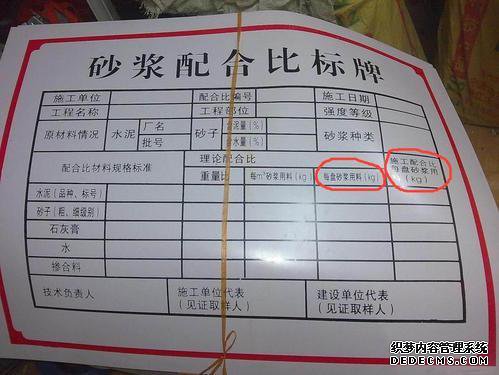 砂浆配合比标牌
施工单位 配合比编号 施工日期
工程名称 工程部位 强度等级
原材料情况 水泥 厂名 砂子 含泥量(%) 砂浆种类
批号 含水量(%)
配合比材料规格标准 理论配合比 施工配合比
重量比 每m³砂浆用料(kg) 每盘砂浆用料(kg) 每盘砂浆用
(kg)
水泥(品种、标号)
砂子(粗、细级别)
石灰膏
水
掺合料
技术负责人 施工单位代表 建设单位代表
(见证取样人) (见证取样人)
织梦内容管理系统
DEDECMS.COM